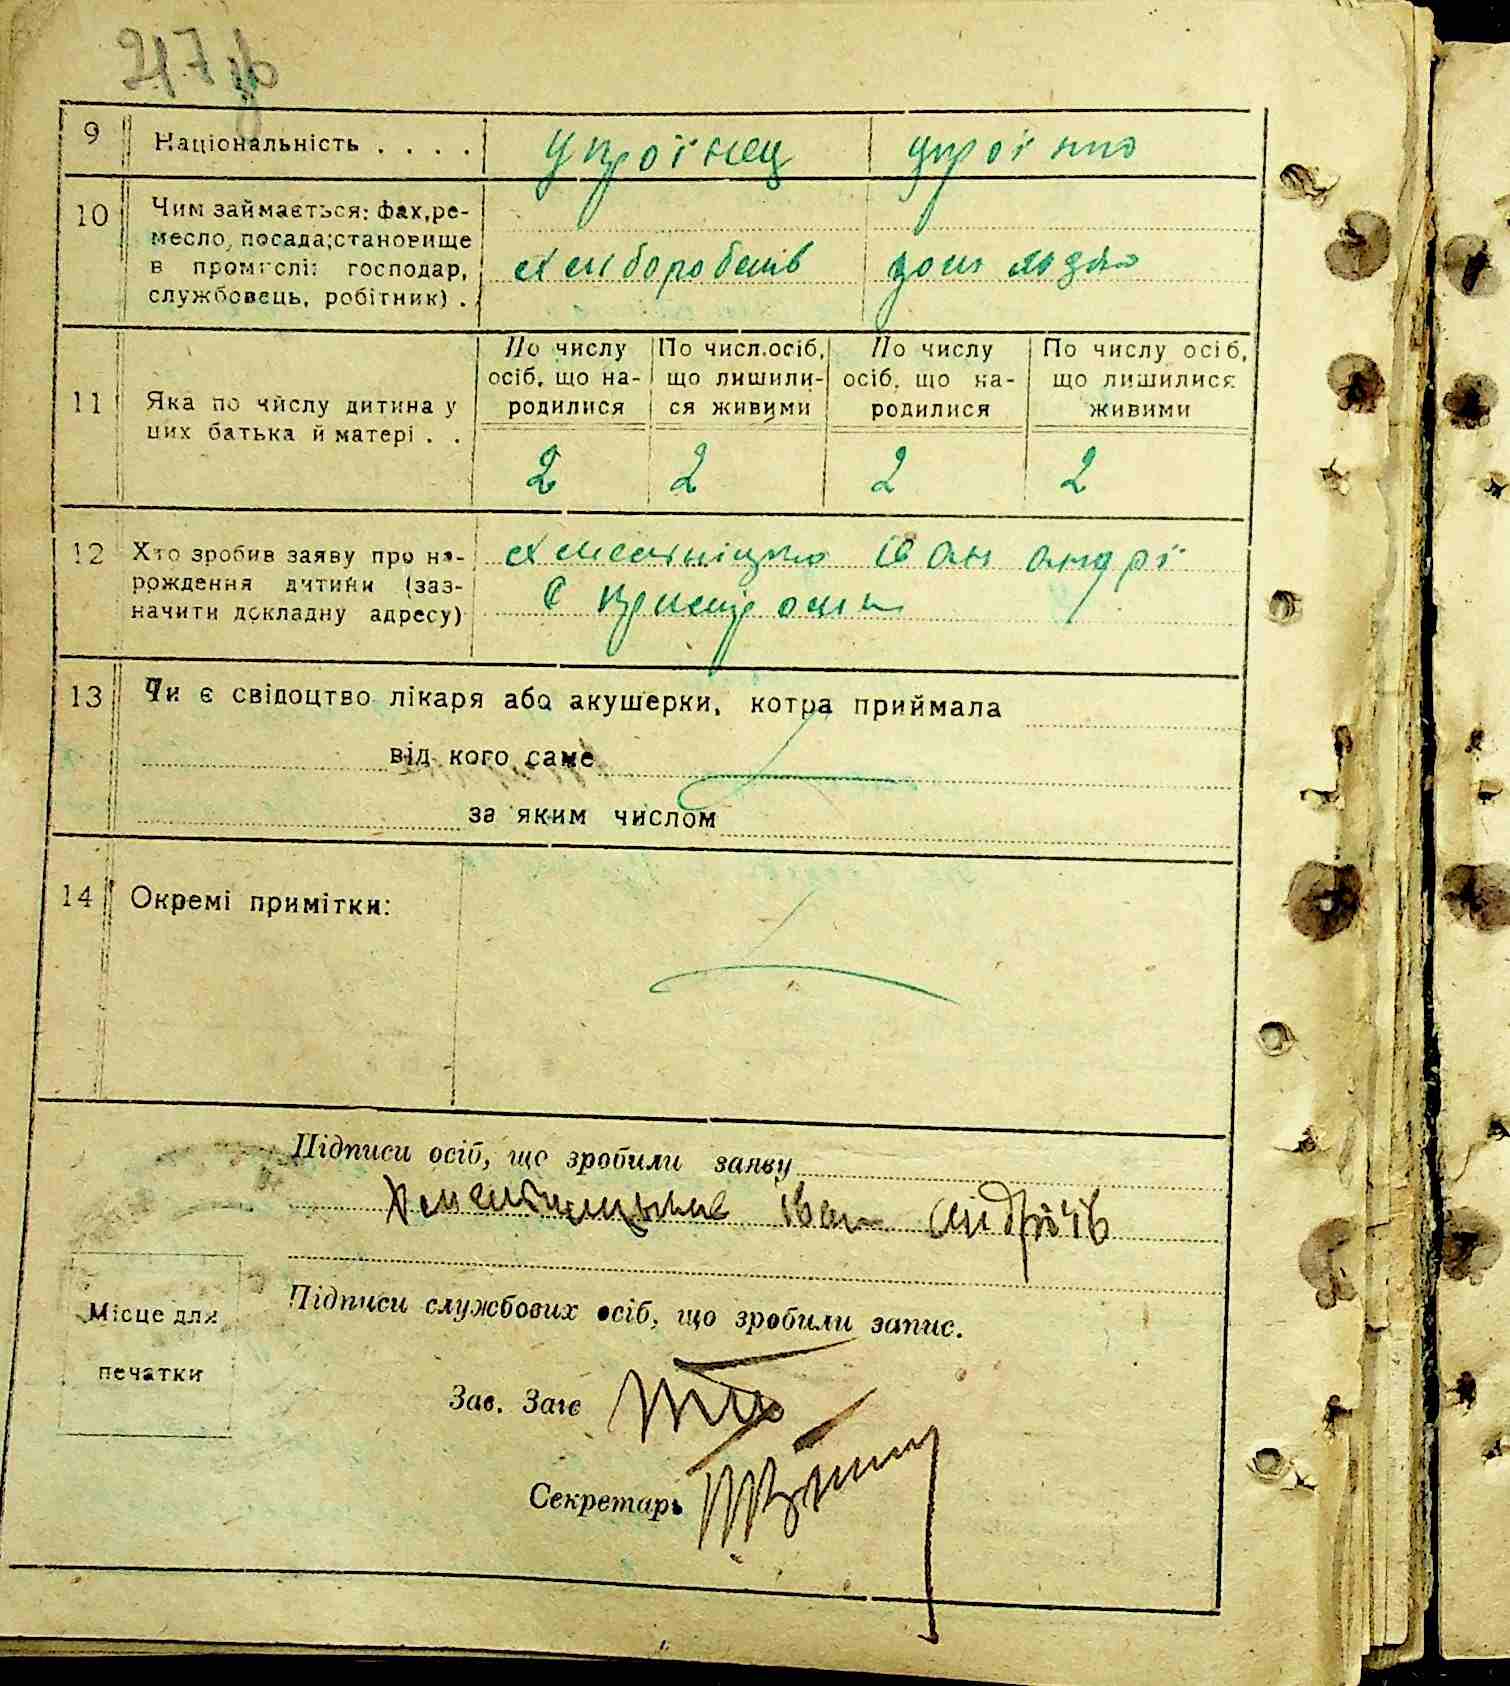 9 Національність . . . . українец українка
10 Чим займається: фах, ре-
месло, посада; становище
в промислі: господар, хлиборобств дом хазяко
службовець, робітник) .
По числу По числ. осіб, По числу По числу осіб,
осіб, що на- що лишили- осіб, що на- що лишилися
родилися ся живими родилися живими
11 Яка по числу дитина у
цих батька й матері . .
2 2 2 2
12 Хто зробив заяву про на- Хмельніцко іван андрі
рождення дитини (заз-
начити докладну адресу)
13 Чи є свідоцтво лікаря або акушерки, котра приймала
від кого саме
за яким числом
14 Окремі примітки:
Підписи осіб, що зробили заяву
Хмельницький іван андріїв
Підписи службових осіб, що зробили запис.
Місце для
печатки
Зав. Загс
Секретарь